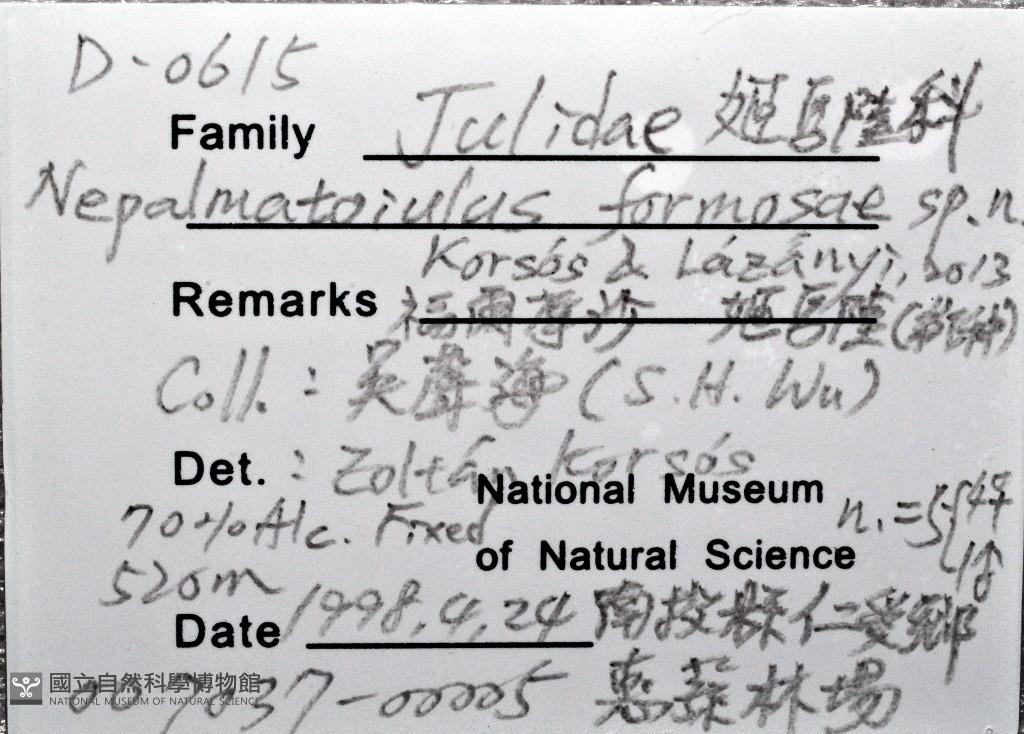 D-0615
Family Julidae 姬馬陸科
Nepalmatoiulus formosae sp.n.
Korsós & Lázányi, 2013
Remarks 福爾摩沙 姬馬陸(新種)
Coll. : 吳聲海 (S.H. Wu)
Det. : Zoltán Korsós
National Museum
70% Alc. Fixed n. = 5 {4♀
1♂
of Natural Science
520m
Date 1998.4.24 南投縣仁愛鄉
國立自然科學博物館
NATIONAL MUSEUM OF NATURAL SCIENCE
007037-00005 惠蓀林場